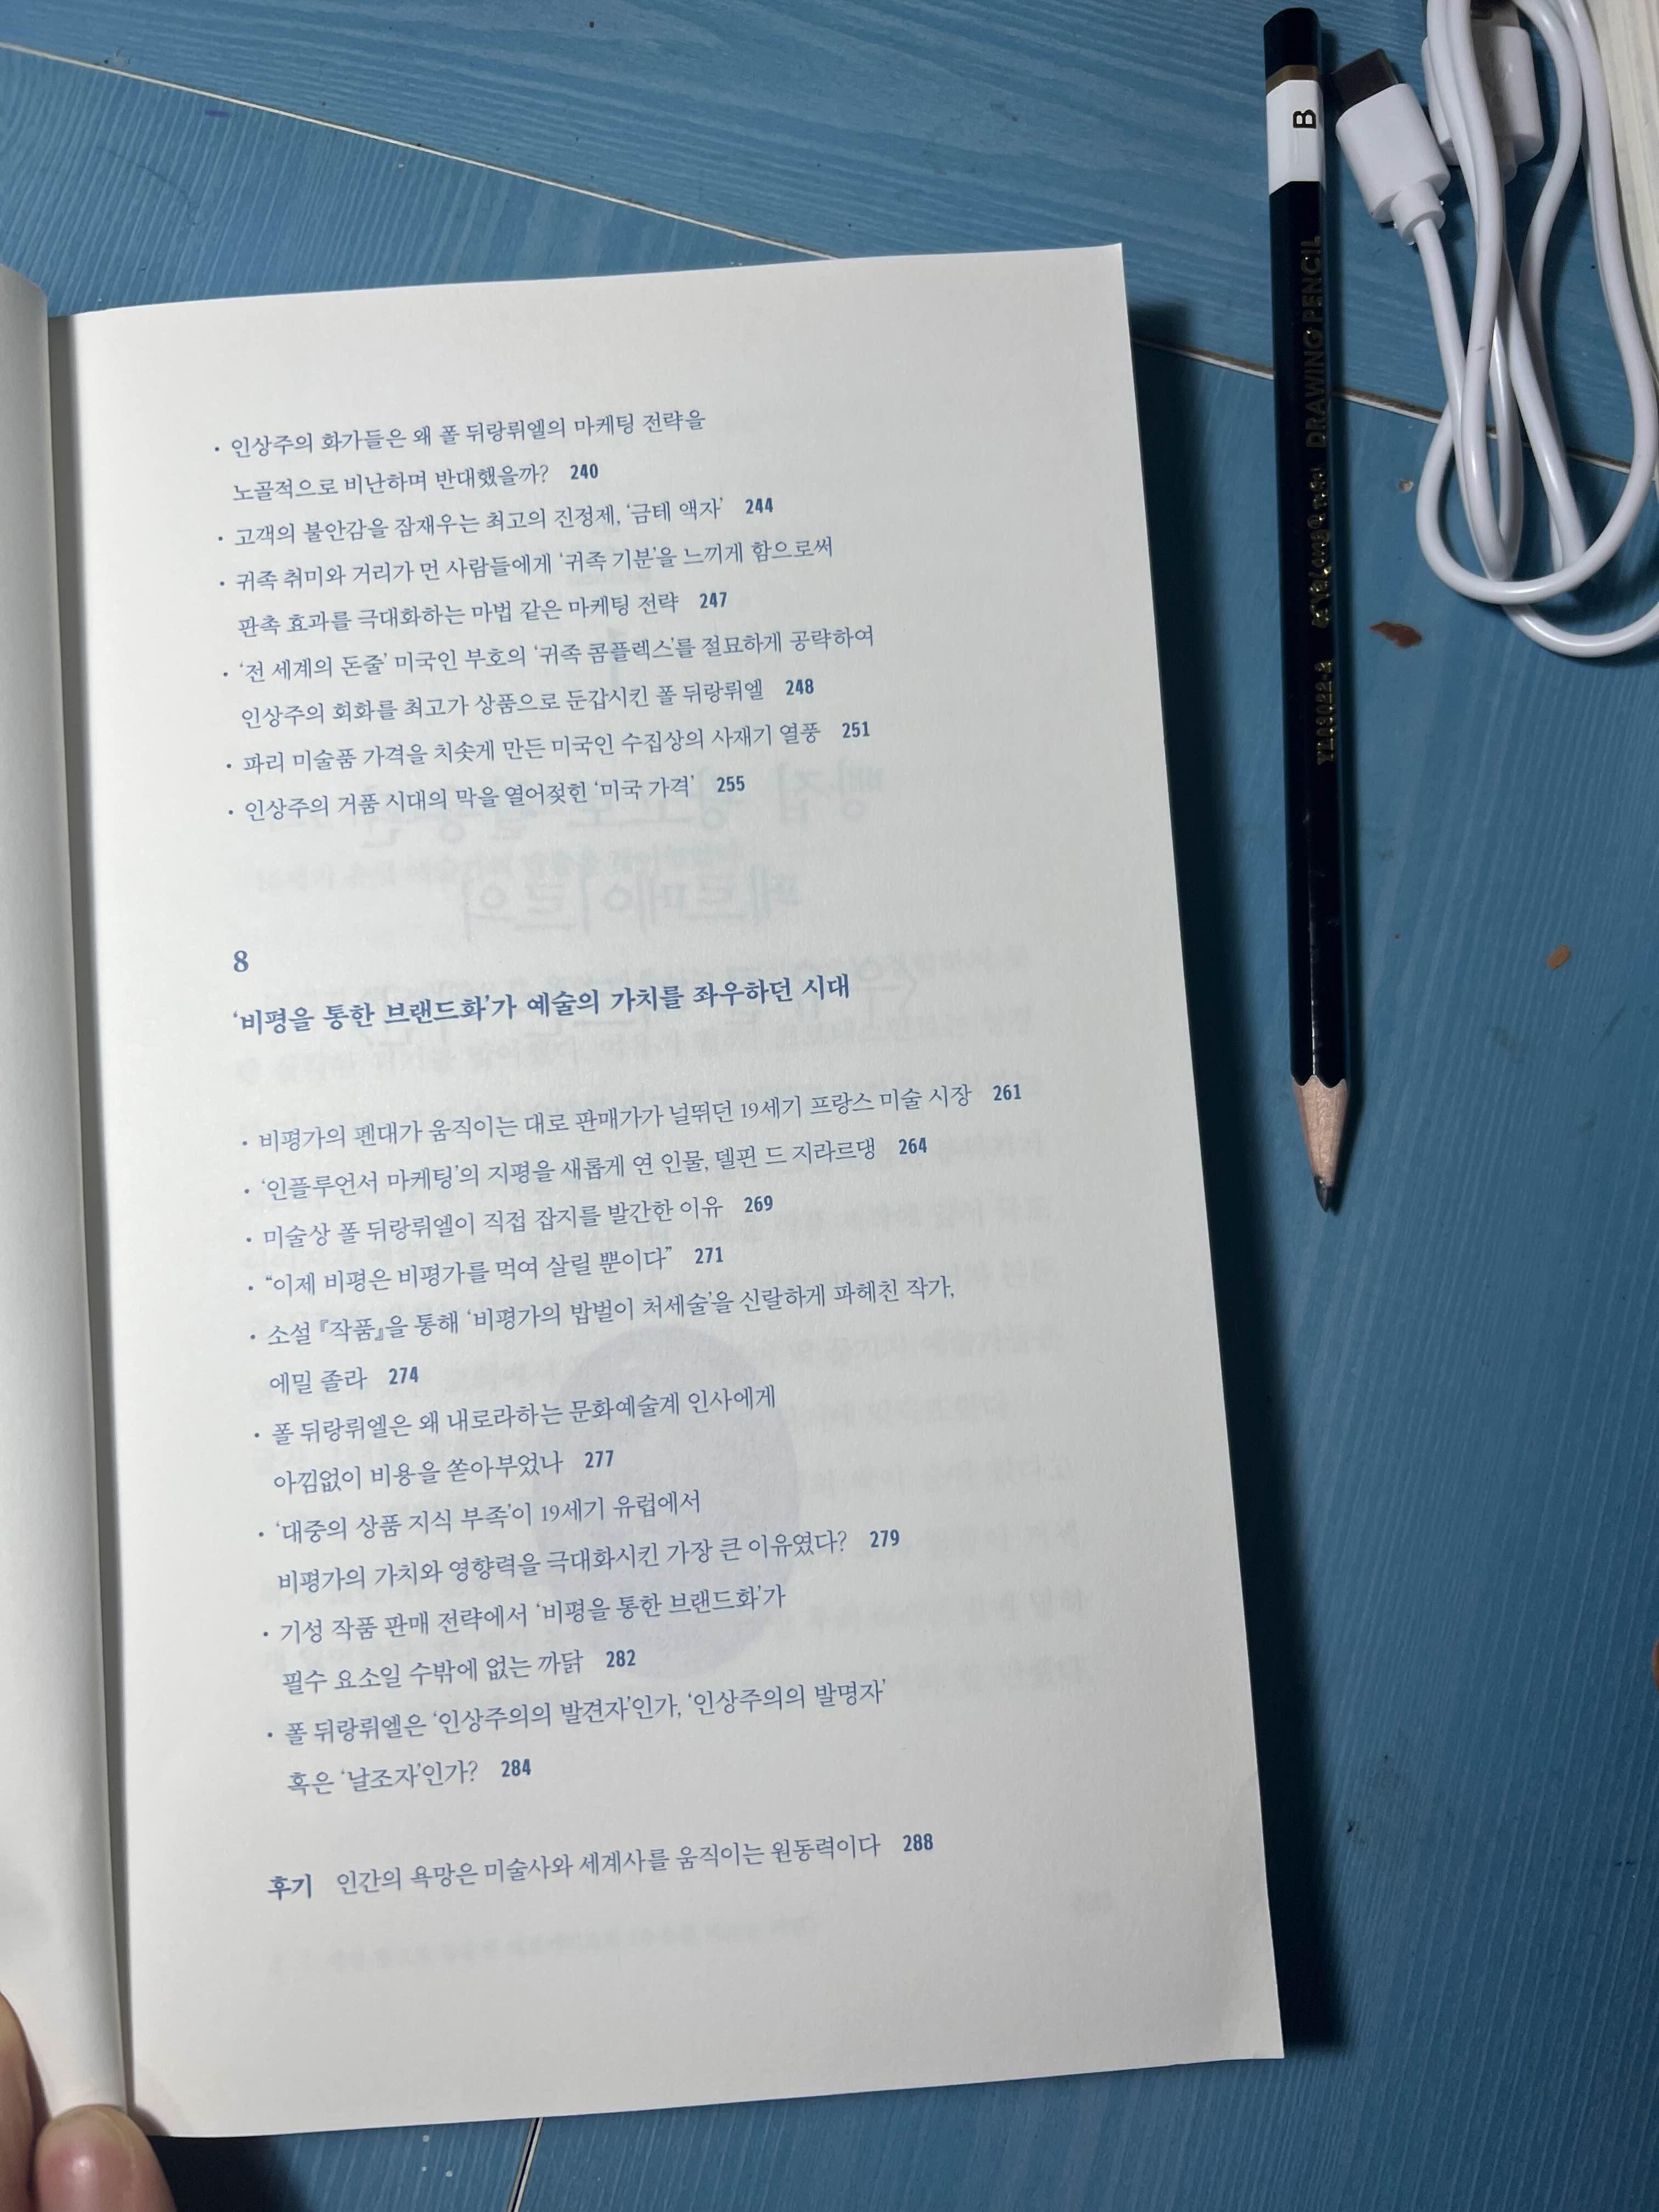 • 인상주의 화가들은 왜 폴 뒤랑뤼엘의 마케팅 전략을
노골적으로 비난하며 반대했을까? 240
• 고객의 불안감을 잠재우는 최고의 진정제, ‘금테 액자’ 244
• 귀족 취미와 거리가 먼 사람들에게 ‘귀족 기분’을 느끼게 함으로써
판촉 효과를 극대화하는 마법 같은 마케팅 전략 247
• ‘전 세계의 돈줄’ 미국인 부호의 ‘귀족 콤플렉스’를 절묘하게 공략하여
인상주의 회화를 최고가 상품으로 둔갑시킨 폴 뒤랑뤼엘 248
• 파리 미술품 가격을 치솟게 만든 미국인 수집상의 사재기 열풍 251
• 인상주의 거품 시대의 막을 열어젖힌 ‘미국 가격’ 255
8
‘비평을 통한 브랜드화’가 예술의 가치를 좌우하던 시대
• 비평가의 펜대가 움직이는 대로 판매가가 널뛰던 19세기 프랑스 미술 시장 261
• ‘인플루언서 마케팅’의 지평을 새롭게 연 인물, 델핀 드 지라르댕 264
• 미술상 폴 뒤랑뤼엘이 직접 잡지를 발간한 이유 269
• “이제 비평은 비평가를 먹여 살릴 뿐이다” 271
• 소설 『작품』을 통해 ‘비평가의 밥벌이 처세술’을 신랄하게 파헤친 작가,
에밀 졸라 274
• 폴 뒤랑뤼엘은 왜 내로라하는 문화예술계 인사에게
아낌없이 비용을 쏟아부었나 277
• ‘대중의 상품 지식 부족’이 19세기 유럽에서
비평가의 가치와 영향력을 극대화시킨 가장 큰 이유였다? 279
• 기성 작품 판매 전략에서 ‘비평을 통한 브랜드화’가
필수 요소일 수밖에 없는 까닭 282
• 폴 뒤랑뤼엘은 ‘인상주의의 발견자’인가, ‘인상주의의 발명자’
혹은 ‘날조자’인가? 284
후기 인간의 욕망은 미술사와 세계사를 움직이는 원동력이다 288
B
DRAWING PENCIL
YL83022-2